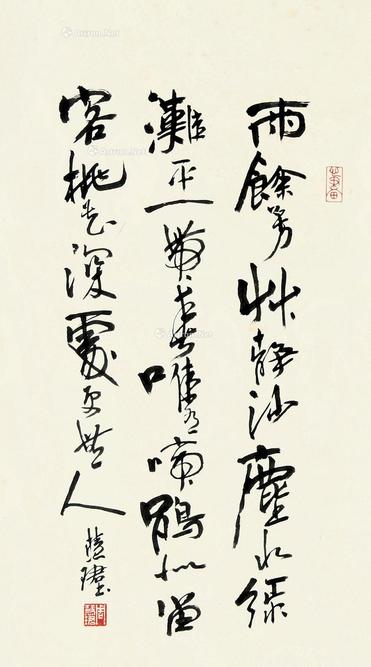 雨餘芳草靜沙塵水綠
灘平一帶春唯有啼鵑似留
客桃花深處更無人
慧珺
Artron.Net